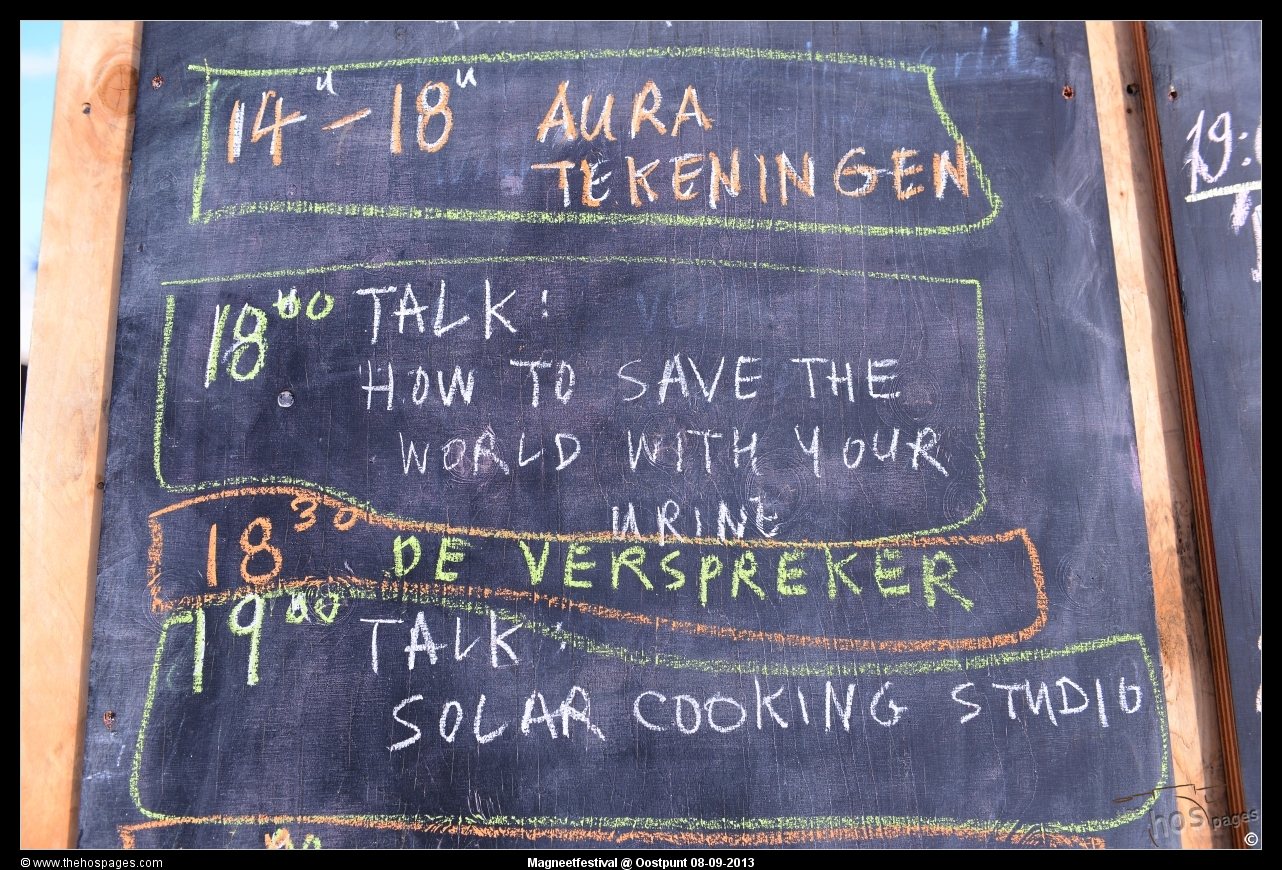 14u - 18u AURA
TEKENINGEN
18 00 TALK:
HOW TO SAVE THE
WORLD WITH YOUR
URINE
18 30 DE VERSPREKER
19 00 TALK:
SOLAR COOKING STUDIO
19:
hos pages
©
© www.thehospages.com
Magneetfestival @ Oostpunt 08-09-2013